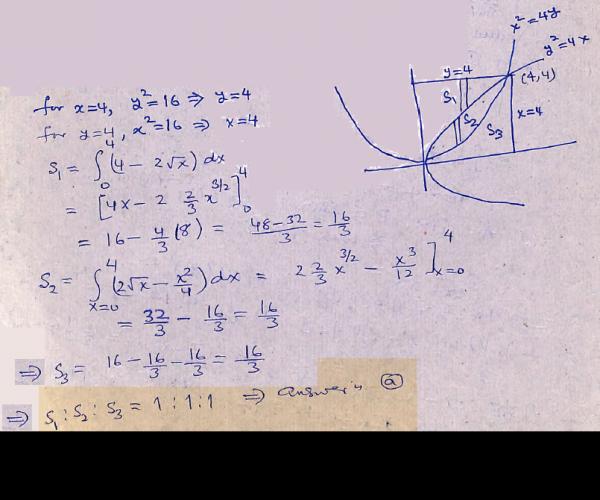 x² = 4y
y² = 4x
y=4
(4,4)
S₁
S₂
x=4
S₃
for x=4, y²=16 ⇒ y=4
for y=4, x²=16 ⇒ x=4
S₁ = ∫₀⁴ (4 − 2√x) dx
= [4x − 2 2/3 x^3/2]₀⁴
= 16 − 4/3 (8) = 48−32/3 = 16/3
S₂ = ∫ₓ₌₀⁴ (2√x − x²/4) dx = 2 2/3 x^3/2 − x³/12 ]ₓ₌₀⁴
= 32/3 − 16/3 = 16/3
⇒ S₃ = 16 − 16/3 − 16/3 = 16/3
⇒ S₁ : S₂ : S₃ = 1 : 1 : 1 ⇒ answer is ⓐ